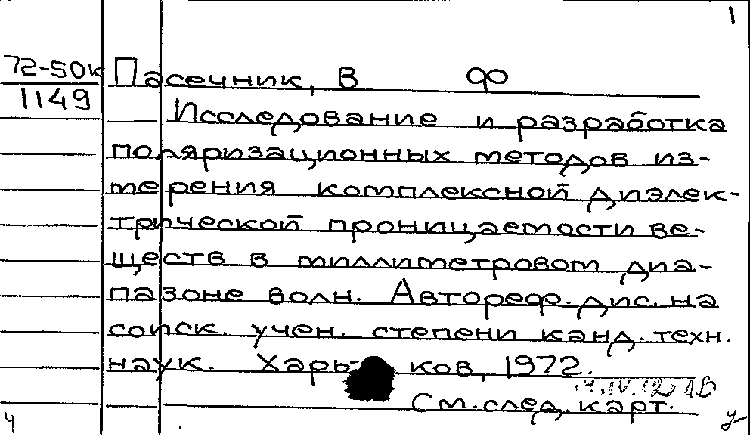 1
72-50к
1149
Пасечник, В Ф
Исследование и разработка
поляризационных методов из-
мерения комплексной диэлек-
трической проницаемости ве-
ществ в миллиметровом диа-
пазоне волн. Автореф. дис. на
соиск. учен. степени канд. техн.
наук. Харьков, 1972.
См. след. карт.
ч